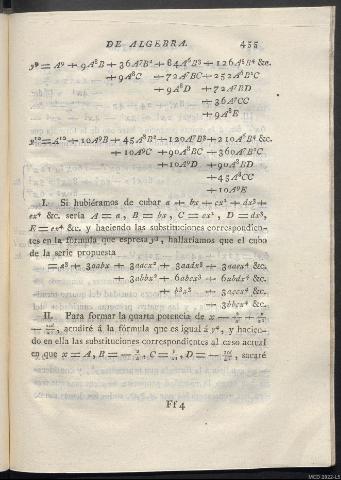 DE ALGEBRA. 455
y⁹ = A⁹ + 9A⁸B + 36A⁷B² + 84A⁶B³ + 126A⁵B⁴ &c.
+ 9A⁸C + 72A⁷BC + 252A⁶B²C
+ 9A⁸D + 72A⁷BD
+ 36A⁷CC
+ 9A⁸E
y¹⁰ = A¹⁰ + 10A⁹B + 45A⁸B² + 120A⁷B³ + 210A⁶B⁴ &c.
+ 10A⁹C + 90A⁸BC + 360A⁷B²C
+ 10A⁹D + 90A⁸BD
+ 45A⁸CC
+ 10A⁹E
I. Si hubiéramos de cubar a + bx + cx² + dx³ +
ex⁴ &c. sería A = a, B = bx, C = cx², D = dx³,
E = ex⁴ &c. y haciendo las substituciones correspondien-
tes en la fórmula que espresa y³, hallaríamos el cubo
de la serie propuesta
= a³ + 3aabx + 3aacx² + 3aadx³ + 3aaex⁴ &c.
+ 3abbx² + 6abcx³ + 6abdx⁴ &c.
+ b³x³ + 3accx⁴ &c.
+ 3bbcx⁴ &c.
II. Para formar la quarta potencia de x
acudiré á la fórmula que es igual á y⁴, y hacien-
do en ella las substituciones correspondientes al caso actual
en que x = A, B = C = D = sacaré
Ff 4
MCD 2022-L5